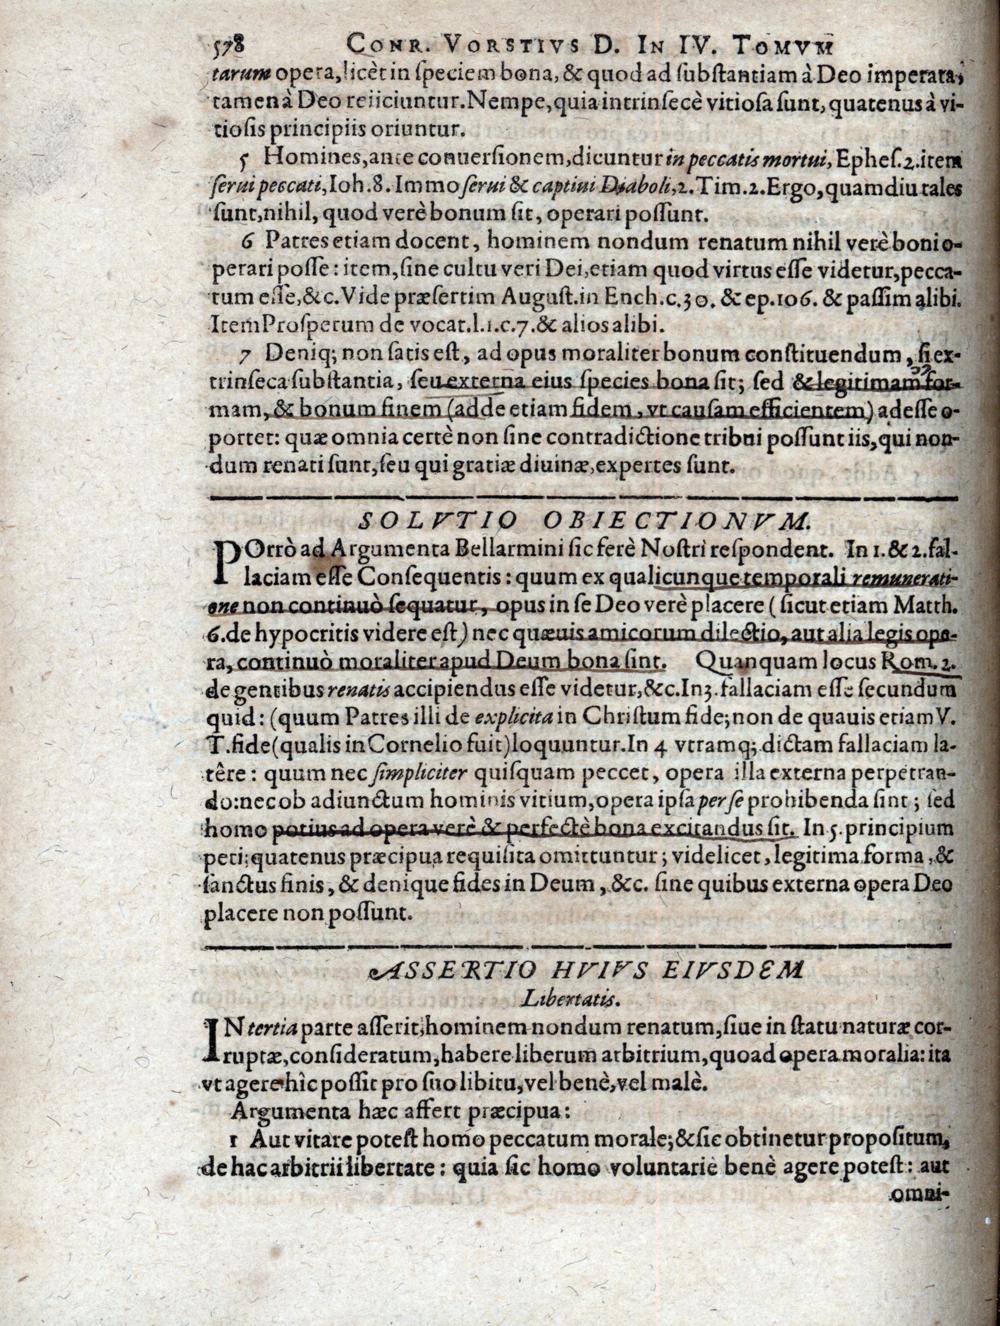 578 CONR. VORSTIVS D. IN IV. TOMVM
tarum opera, licèt in ſpeciem bona, & quod ad ſubſtantiam à Deo imperata;
tamen à Deo reiiciuntur. Nempe, quia intrinſecè vitioſa ſunt, quatenus à vi-
tioſis principiis oriuntur.
5 Homines, ante conuerſionem, dicuntur in peccatis mortui, Epheſ. 2. item
ſerui peccati, Ioh. 8. Immo ſerui & captiui Diaboli, 2. Tim. 2. Ergo, quamdiu tales
ſunt, nihil, quod verè bonum ſit, operari poſſunt.
6 Patres etiam docent, hominem nondum renatum nihil verè boni o-
perari poſſe: item, ſine cultu veri Dei, etiam quod virtus eſſe videtur, pecca-
tum eſſe, &c. Vide præſertim Auguſt. in Ench. c. 30. & ep. 106. & paſſim alibi.
Item Proſperum de vocat. l. 1. c. 7. & alios alibi.
7 Deniq; non ſatis eſt, ad opus moraliter bonum conſtituendum, ſi ex-
trinſeca ſubſtantia, ſeu externa eius ſpecies bona ſit; ſed & legitimam for-
mam, & bonum finem (adde etiam fidem, vt cauſam efficientem) adeſſe o-
portet: quæ omnia certè non ſine contradictione tribui poſſunt iis, qui non-
dum renati ſunt, ſeu qui gratiæ diuinæ, expertes ſunt.
SOLVTIO OBIECTIONVM.
POrrò ad Argumenta Bellarmini ſic ferè Noſtri reſpondent. In 1. & 2. fal-
laciam eſſe Conſequentis: quum ex qualicunque temporali remunerati-
one non continuò ſequatur, opus in ſe Deo verè placere (ſicut etiam Matth.
6. de hypocritis videre eſt) nec quæuis amicorum dilectio, aut alia legis ope-
ra, continuò moraliter apud Deum bona ſint. Quanquam locus Rom. 2.
de gentibus renatis accipiendus eſſe videtur, &c. In 3. fallaciam eſſe ſecundum
quid: (quum Patres illi de explicita in Chriſtum fide; non de quauis etiam V.
T. fide (qualis in Cornelio fuit) loquuntur. In 4 vtramq; dictam fallaciam la-
têre: quum nec ſimpliciter quiſquam peccet, opera illa externa perpetran-
do: nec ob adiunctum hominis vitium, opera ipſa per ſe prohibenda ſint; ſed
homo potius ad opera verè & perfectè bona excitandus ſit. In 5. principium
peti; quatenus præcipua requiſita omittuntur; videlicet, legitima forma, &
ſanctus finis, & denique fides in Deum, &c. ſine quibus externa opera Deo
placere non poſſunt.
ASSERTIO HVIVS EIVSDEM
Libertatis.
IN tertia parte aſſerit, hominem nondum renatum, ſiue in ſtatu naturæ cor-
ruptæ, conſideratum, habere liberum arbitrium, quoad opera moralia: ita
vt agere hîc poſſit pro ſuo libitu, vel benè, vel malè.
Argumenta hæc affert præcipua:
1 Aut vitare poteſt homo peccatum morale; & ſic obtinetur propoſitum,
de hac arbitrii libertate: quia ſic homo voluntariè benè agere poteſt: aut
omni-